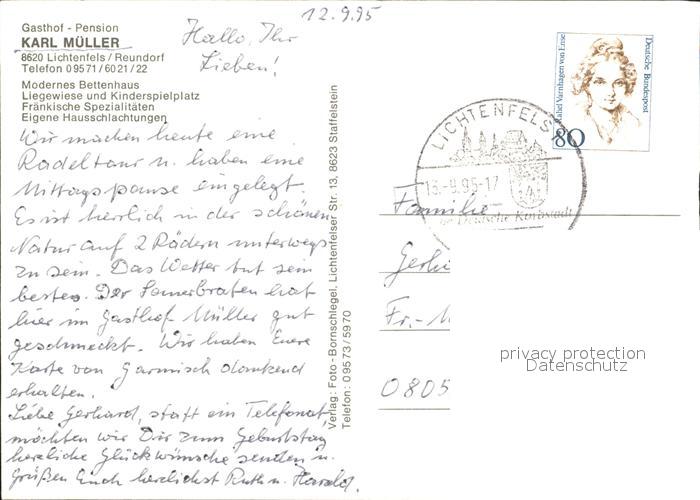 12.9.95
Gasthof - Pension
KARL MÜLLER
8620 Lichtenfels / Reundorf
Telefon 09571/6021/22
Modernes Bettenhaus
Liegewiese und Kinderspielplatz
Fränkische Spezialitäten
Eigene Hausschlachtungen
Hallo, Ihr
Lieben!
Wir machen heute eine
Radeltour u. haben eine
Mittagspause eingelegt.
Es ist herrlich in der schönen
Natur auf 2 Rädern unterwegs
zu sein. Das Wetter tut sein
bestes. Der Sauerbraten hat
hier im Gasthof Müller gut
geschmeckt. Wir haben Eure
Karte von Garmisch dankend
erhalten.
Liebe Gerhard, statt ein Telefonat,
möchten wir Dir zum Geburtstag
herzliche Glückwünsche senden u.
Grüßen Euch herzlichst Ruth u. Harald.
Verlag: Foto-Bornschlegel, Lichtenfelser Str. 13, 8623 Staffelstein
Telefon: 09573/5970
LICHTENFELS
-9.95-17
Deutsche Korbstadt
Rahel Varnhagen von Ense
Deutsche Bundespost
80
Familie
Gerh
Fr.-
0805
privacy protection
Datenschutz